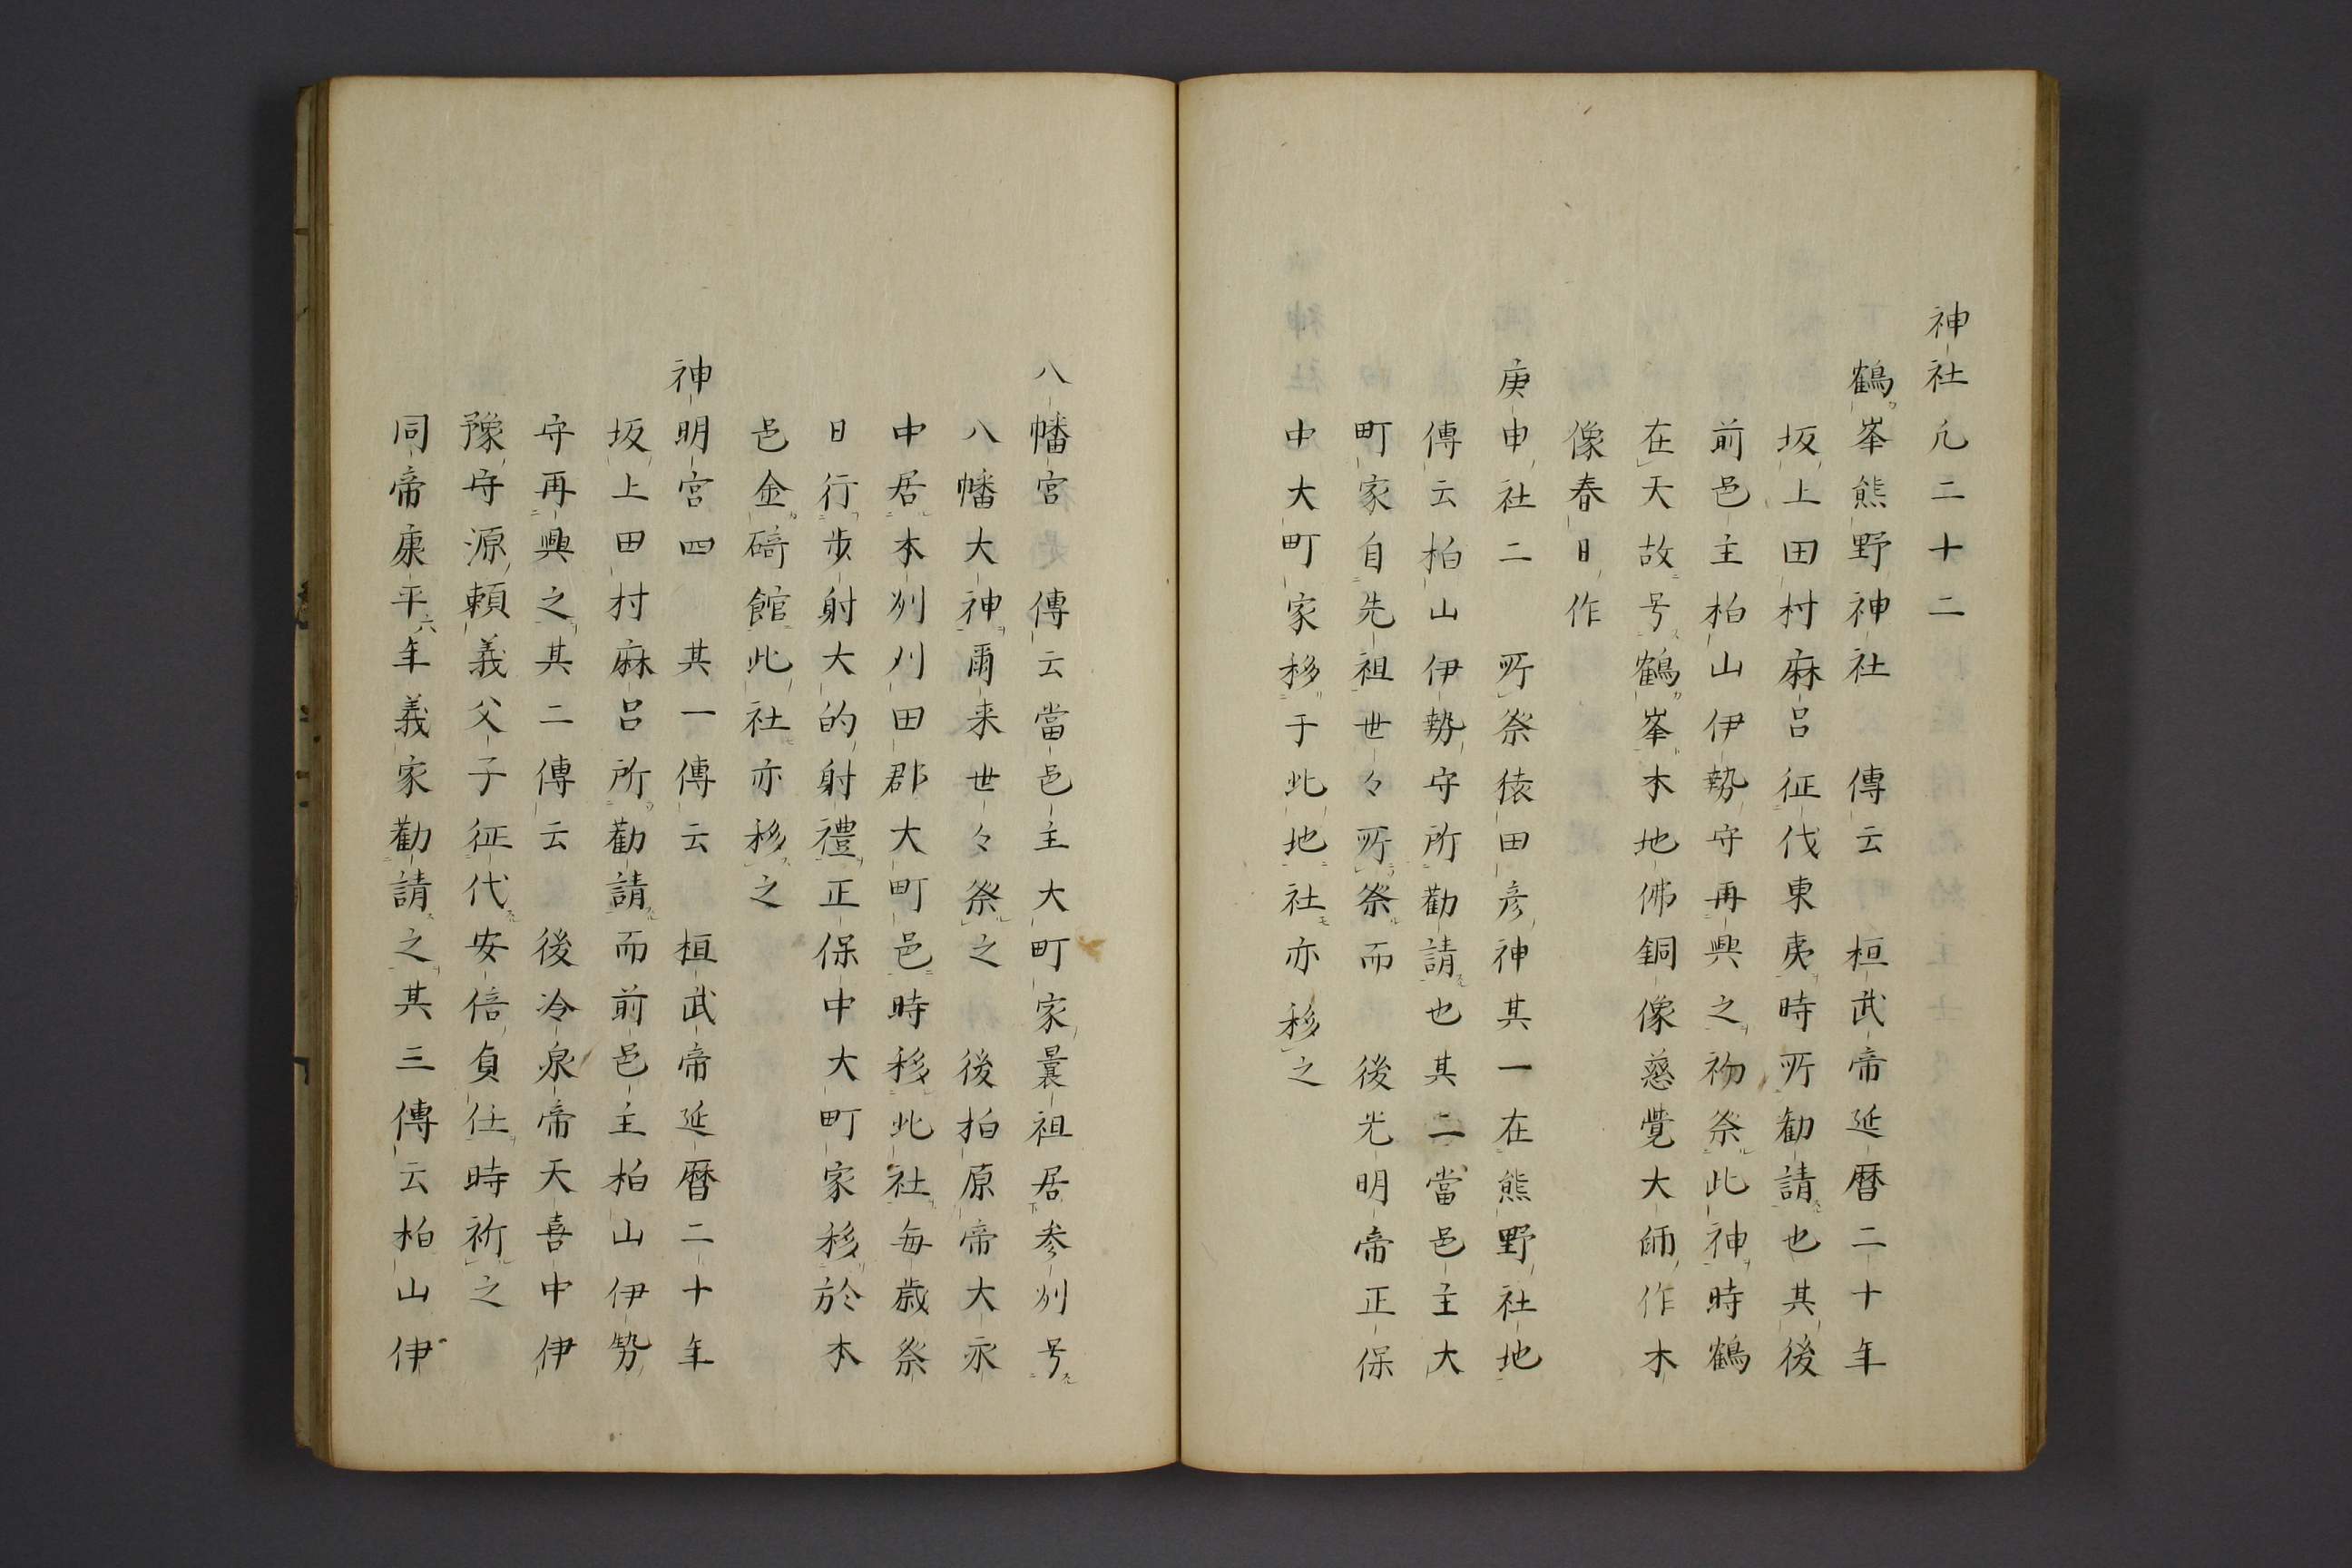 神社凢二十二
鶴峯熊野神社　傳云　桓武帝延暦二十年
坂上田村麻呂征伐東夷時所勸請也其後
前邑主柏山伊勢守再興之初祭此神時鶴
在天故号鶴峯本地佛銅像慈覺大師作木
像春日作
庚申社二　所祭猿田彦神其一在熊野社地
傳云柏山伊勢守所勸請也其二當邑主大
町家自先祖世々所祭而　後光明帝正保
中大町家移于此地社亦移之
八幡宮　傳云當邑主大町家曩祖居参州号
八幡大神爾来世々祭之　後柏原帝大永
中居本州刈田郡大町邑時移此社毎歳祭
日行歩射大的射禮正保中大町家移於本
邑金碕館此社亦移之
神明宮四　其一傳云　桓武帝延暦二十年
坂上田村麻呂所勸請而前邑主柏山伊勢
守再興之其二傳云　後冷泉帝天喜中伊
豫守源頼義父子征代安倍貞任時祈之
同帝康平六年義家勸請之其三傳云柏山伊